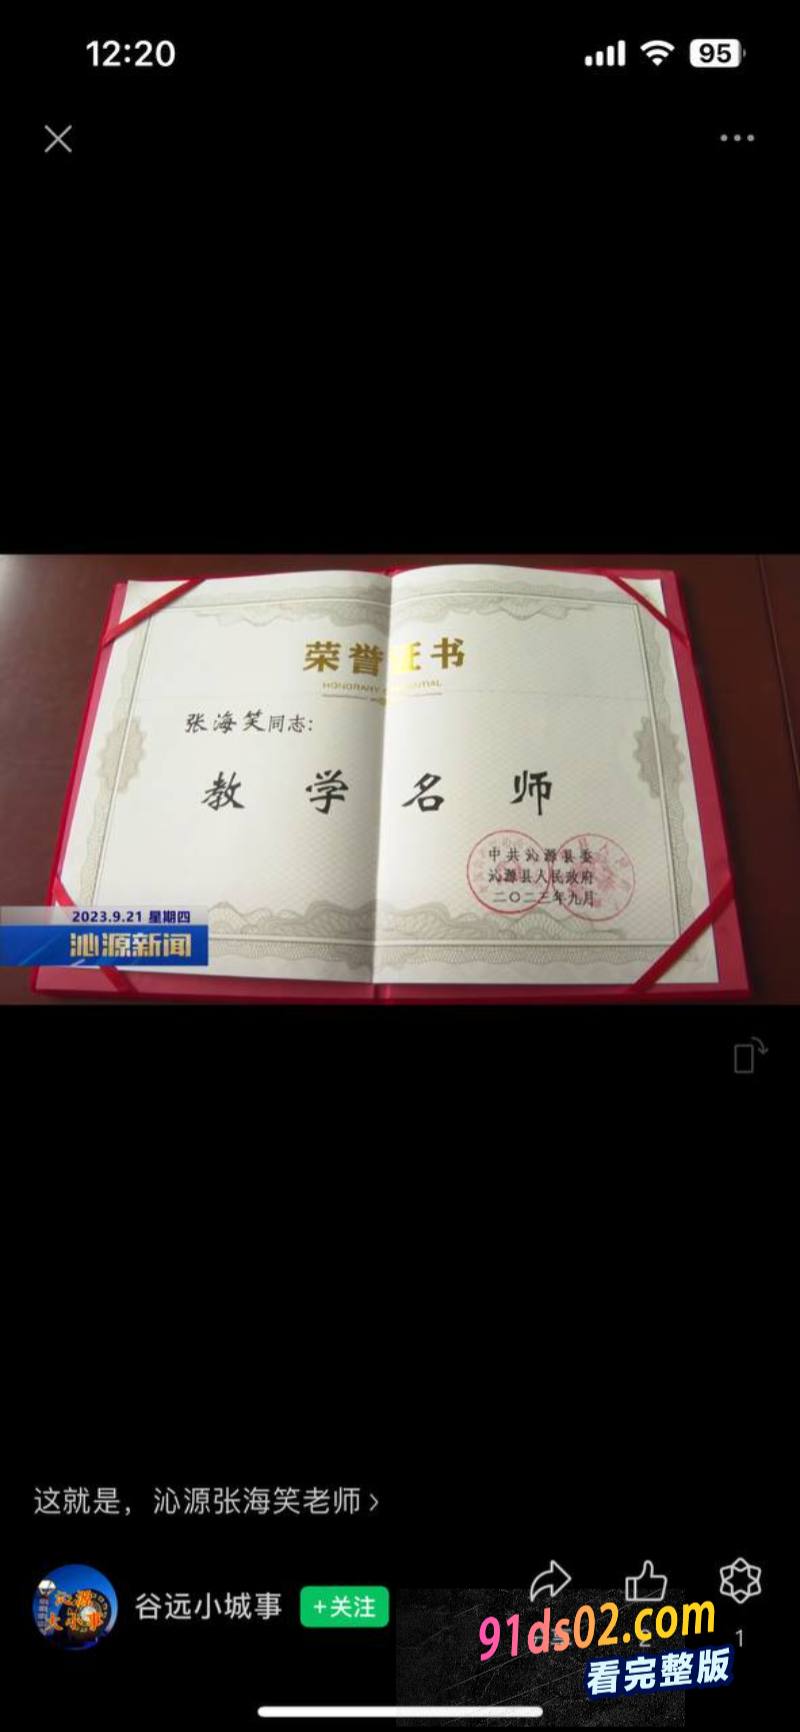 12:20
95
荣誉证书
张海笑同志:
教学名师
中共沁源县委
沁源县人民政府
二〇二三年九月
2023.9.21 星期四
沁源新闻
这就是，沁源张海笑老师
谷远小城事
+关注
1
91ds02.com
看完整版